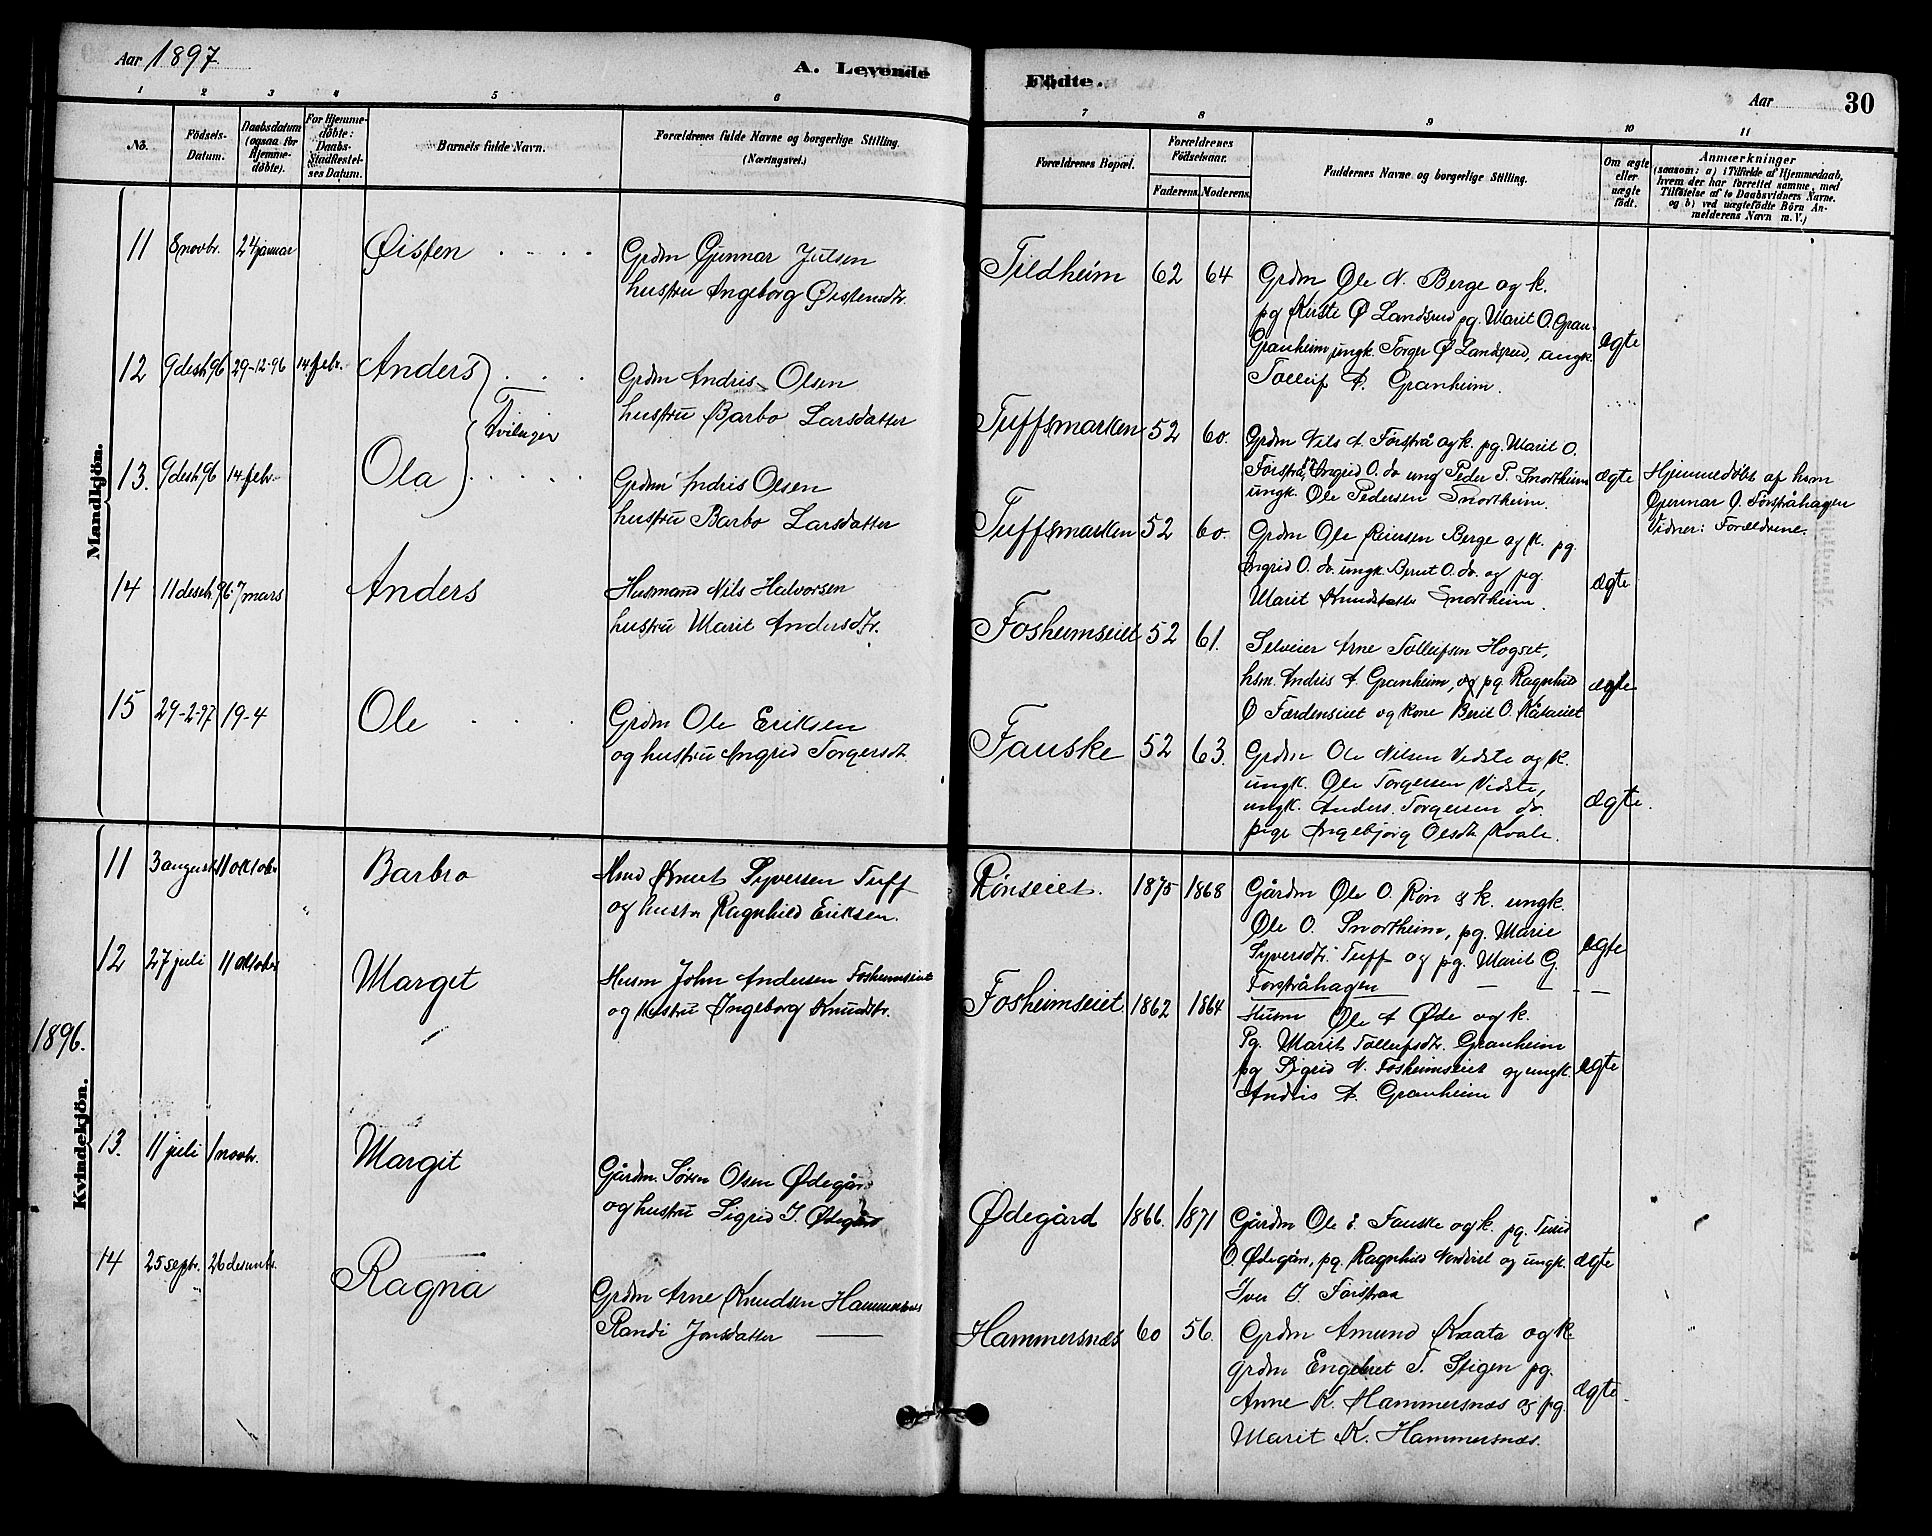 Aar 1897
A. Levende
Födte.
Aar
30
1 2 3 4 5 6 7 8 9 10 11
No.
Födsels-
Datum.
Daabsdatum
(ogsaa for
Hjemme-
döbte).
For Hjemme-
döbte:
Daabs-
Stadfæstel-
ses Datum.
Barnets fulde Navn.
Forældrenes fulde Navne og borgerlige Stilling.
(Næringsvei.)
Forældrenes Bopæl.
Forældrenes
Födselsaar.
Faderens. Moderens.
Faddernes Navne og borgerlige Stilling.
Om ægte
eller
uægte
födt.
Anmærkninger
(saasom: a) i Tilfælde af Hjemmedaab,
hvem der har forrettet samme, med
Tilföielse af to Daabsvidners Navne.
og b) ved uægtefödte Börn An-
melderens Navn m. V.)
Mandkjön.
11 8 novbr. 24 januar Øisten
Grdm Gunnar Julsen
hustru Ingeborg Øistensdtr.
Tildheim 62 64
Grdm Ole N. Berge og k.
pg Kirste Ø Landsrud pg. Marit O. Gran-
Granheim ungk. Torger Ø Landsrud, ungk.
Tolleif A. Granheim.
ægte
12 9 desb 96 29-12-96 14. febr. Anders
Tvilinger
Grdm Andris Olsen
hustru Barbo Larsdatter
Tuffsmarken 52 60.
Grdm Nils A. Förstrå og k. pg. Marit O.
Förstrå, Ingrid O. do ung Peder P. Snortheim
ungk. Ole Pedersen Snortheim.
ægte
Hjemmedöbt af hsm
Gunnar O. Förstråhagen
Vidner: Forældrene.
13. 9 desb 96 14. febr. Ola
Grdm Andris Olsen
hustru Barbo Larsdatter
Tuffsmarken 52 60.
Grdm Ole Reiersen Berge og k. pg.
Ingrid O. do. ungk. Bernt O. do. og pg
Marit Knudsdatter Snortheim.
ægte
14 11 desb. 96. 7 mars Anders
Husmand Nils Halvorsen
hustru Marit Andersdtr.
Fosheimseiet 52 61.
Selveier Arne Tolleifsen Hogset,
hsm. Andris A Granheim, og pg. Ragnhild
Ø Færdenseiet og kone Berit O.
ægte
15 29-2-97 19-4 Ole
Grdm Ole Eriksen
og hustru Ingrid Torgersdt.
Fauske 52 63.
Grdm Ole Nilsen Vidste og k.
ungk. Ole Torgersen Vidste,
ungk. Anders Torgersen do.
pige Ingebjörg Olsdt Kvale.
ægte.
1896.
Kvindekjön.
11 3 august 11 oktober Barbro
Hmd Knut Syversen Tuff
og hustr Ragnhild Eriksen.
Rönseiet. 1875 1868
Gårdm Ole O. Rön & k. ungk.
Ole O. Snortheim, pg. Marie
Syversdtr. Tuff og pg. Marit G.
Forstråhagen
ægte
12 27 juli 11 oktober Margit
Husm John Andersen Fosheimseiet
og hustru Ingeborg Knudsdtr.
Fosheimseiet 1862 1864
Husm Ole A Øde og k.
Pg. Marit Tolleifsdtr. Granheim
pg Sigrid N. Fosheimseiet og ungk.
Andris A. Granheim
ægte
13. 11 juli 1 novbr. Margit
Gårdm. Sören Olsen Ødegård
og hustru Sigrid I. Ødegård
Ødegård 1866. 1871
Gårdm Ole E. Fauske og k. pg. Turid
O. Ødegård, pg. Ragnhild Nordriet og ungk.
Iver I. Förstraa
ægte
14 25 septr. 26 desembr. Ragna
Grdm Arne Knudsen Hammersnæs
Randi Jonsdatter
Hammersnæs 60 56.
Grdm Amund Kvata og k
grdm Engebret T. Stigen pg.
Anne K. Hammersnæs og pg.
Marit K. Hammersnæs.
ægte.